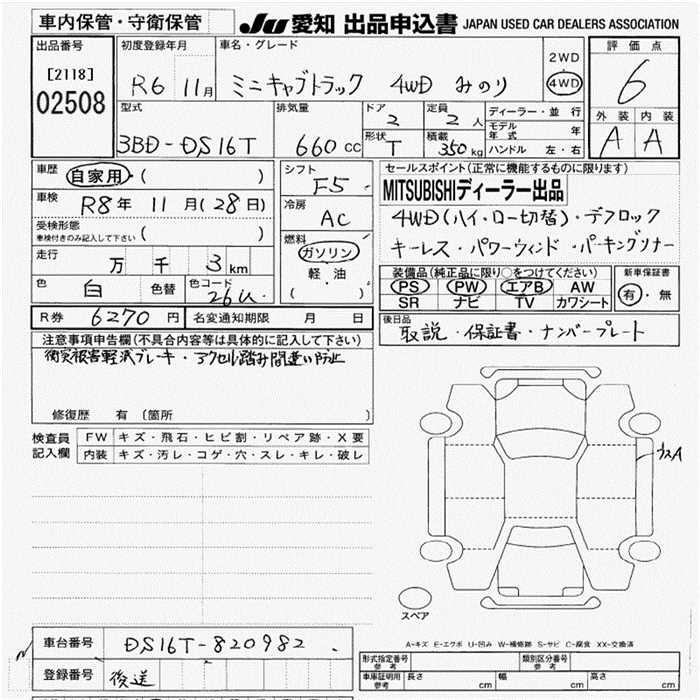 車内保管・守衛保管
JU 愛知 出品申込書 JAPAN USED CAR DEALERS ASSOCIATION
出品番号 初度登録年月 車名・グレード 評価点
[2118] 2WD
02508 R6 11月 ミニキャブトラック 4WD みのり 4WD 6
型式 排気量 ドア 定員 ディーラー・並行 外装 内装
2 2人 モデル年式 年
3BD-DS16T 660cc 形状 T 積載 350kg ハンドル 左・右 A A
車歴 自家用・( )
車検 R8年 11月(28日)
受検形態
車検付きのみ記入して下さい ( )
走行 万 千 3km
色 白 色替 色コード 26U
シフト F5
冷房 AC
燃料 ガソリン・
軽・油
( )
セールスポイント(正常に機能するものに限ります)
MITSUBISHIディーラー出品
4WD(ハイ・ロー切替)・デフロック
キーレス・パワーウィンド・パーキングソナー
装備品(純正品に限り○をつけてください) 新車保証書
PS PW エアB AW 有・無
SR ナビ TV カワシート
R券 6270円 名変通知期限 月 日
後日品
取説・保証書・ナンバープレート
注意事項申告欄(不具合内容等は具体的に記入して下さい)
衝突被害軽減ブレーキ・アクセル踏み間違い防止
修復歴 有 〔箇所 〕
検査員 FW キズ・飛石・ヒビ割・リペア跡・X要
記入欄 内装 キズ・汚レ・コゲ・穴・スレ・キレ・破レ
ウスA
スペア
A-キズ E-エクボ U-凹み W-補修跡 S-サビ C-腐食 XX-交換済
車台番号 DS16T-820982
登録番号 後送
形式指定番号 参考 類別区分番号 参考
車庫証明用 参考 長さ cm 幅 cm 高さ cm